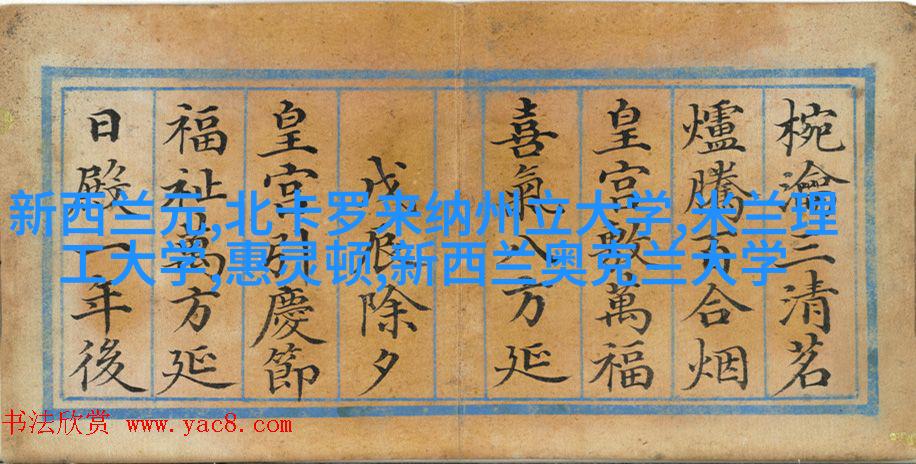 椀瀹三清茗
爐騰百合烟
皇宮敷萬福
喜氣八方延
戊辰除夕
皇宮引慶節
福祉萬方延
日殿一年後
新西兰元,北卡罗来纳州立大学,米兰理
工大学,惠灵顿,新西兰奥克兰大学
书法欣赏 www.yac8.com